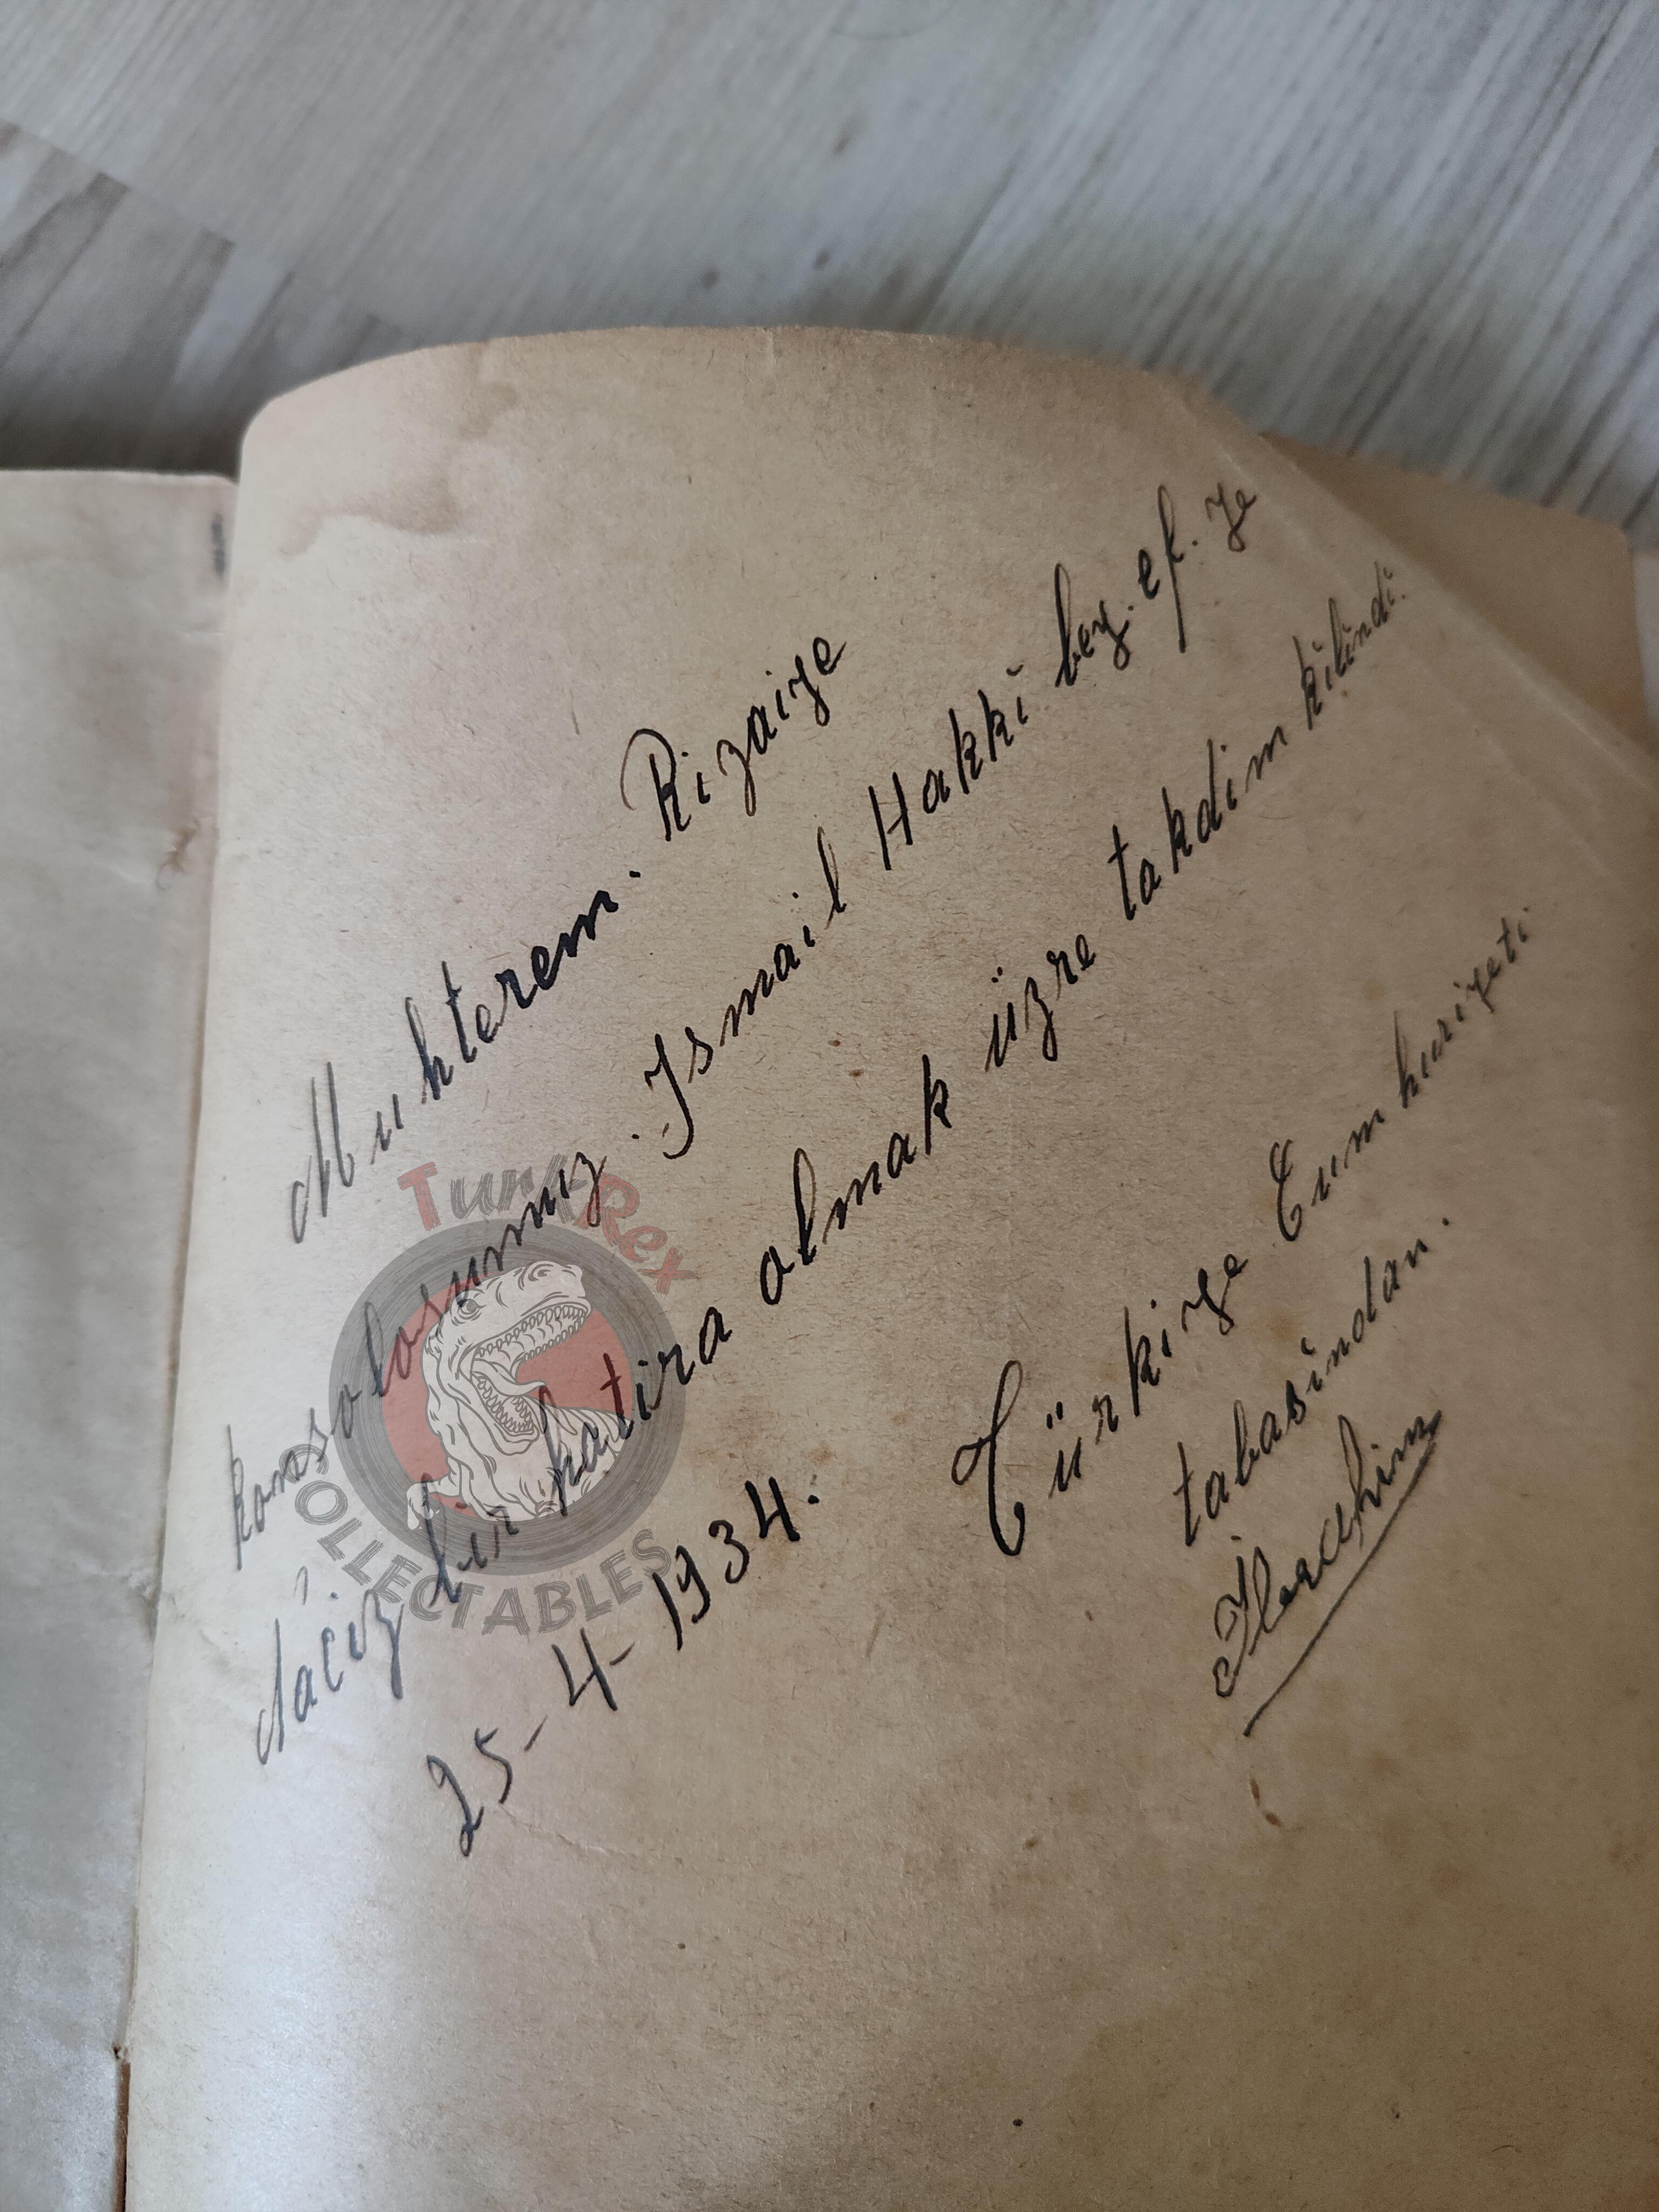 Muhterem. Rizaiye
konsolosumuz. Ismail Hakki bey. ef. ye
Naciz bir hatira olmak üzre takdim kilindi.
25-4-1934.
Türkiye Cumhuriyeti
tabasindan.
TurkRex
COLLECTABLES